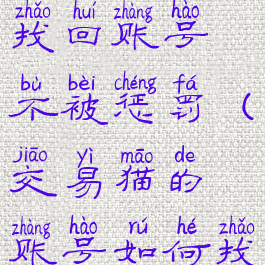 zhǎo huí zhàng hào
找回账号
bù bèi chéng fá
不被惩罚（
jiāo yì māo de
交易猫的
zhàng hào rú hé zhǎo
账号如何找